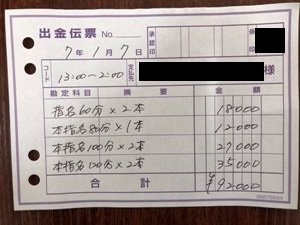 出金伝票 No.
承認印
係印
7年1月7日
コード 13:00~2:00 支払先 様
勘定科目 摘要 金額
指名60分×2本 18000
本指名80分×1本 12000
本指名100分×2本 27000
本指名120分×2本 35000
合計 ¥92000